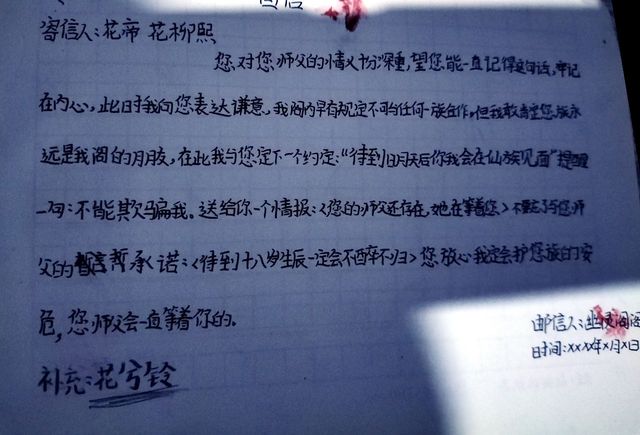 回信
寄信人:花帝 花柳熙
您对您师父的情义十分深重,望您能一直记得这句话,牢记
在内心,此日于我向您表达谦意。我阁内早有规定不可与任何一族合作,但我敢肯定您族永
远是我阁的月月友,在此我与您定下一个约定:“待到日月天后你我会在仙族见面”提醒
一句:不能欺骗我。送给你一个情报:〈您的师父还存在,她在等着您〉不要忘了与您师
父的誓言承诺:〈待到十八岁生辰一定会不醉不归〉您放心我定会护您族的安
危,您师父会一直等着你的。
邮信人:
时间:xxxx年x月x日
补充:花兮铃